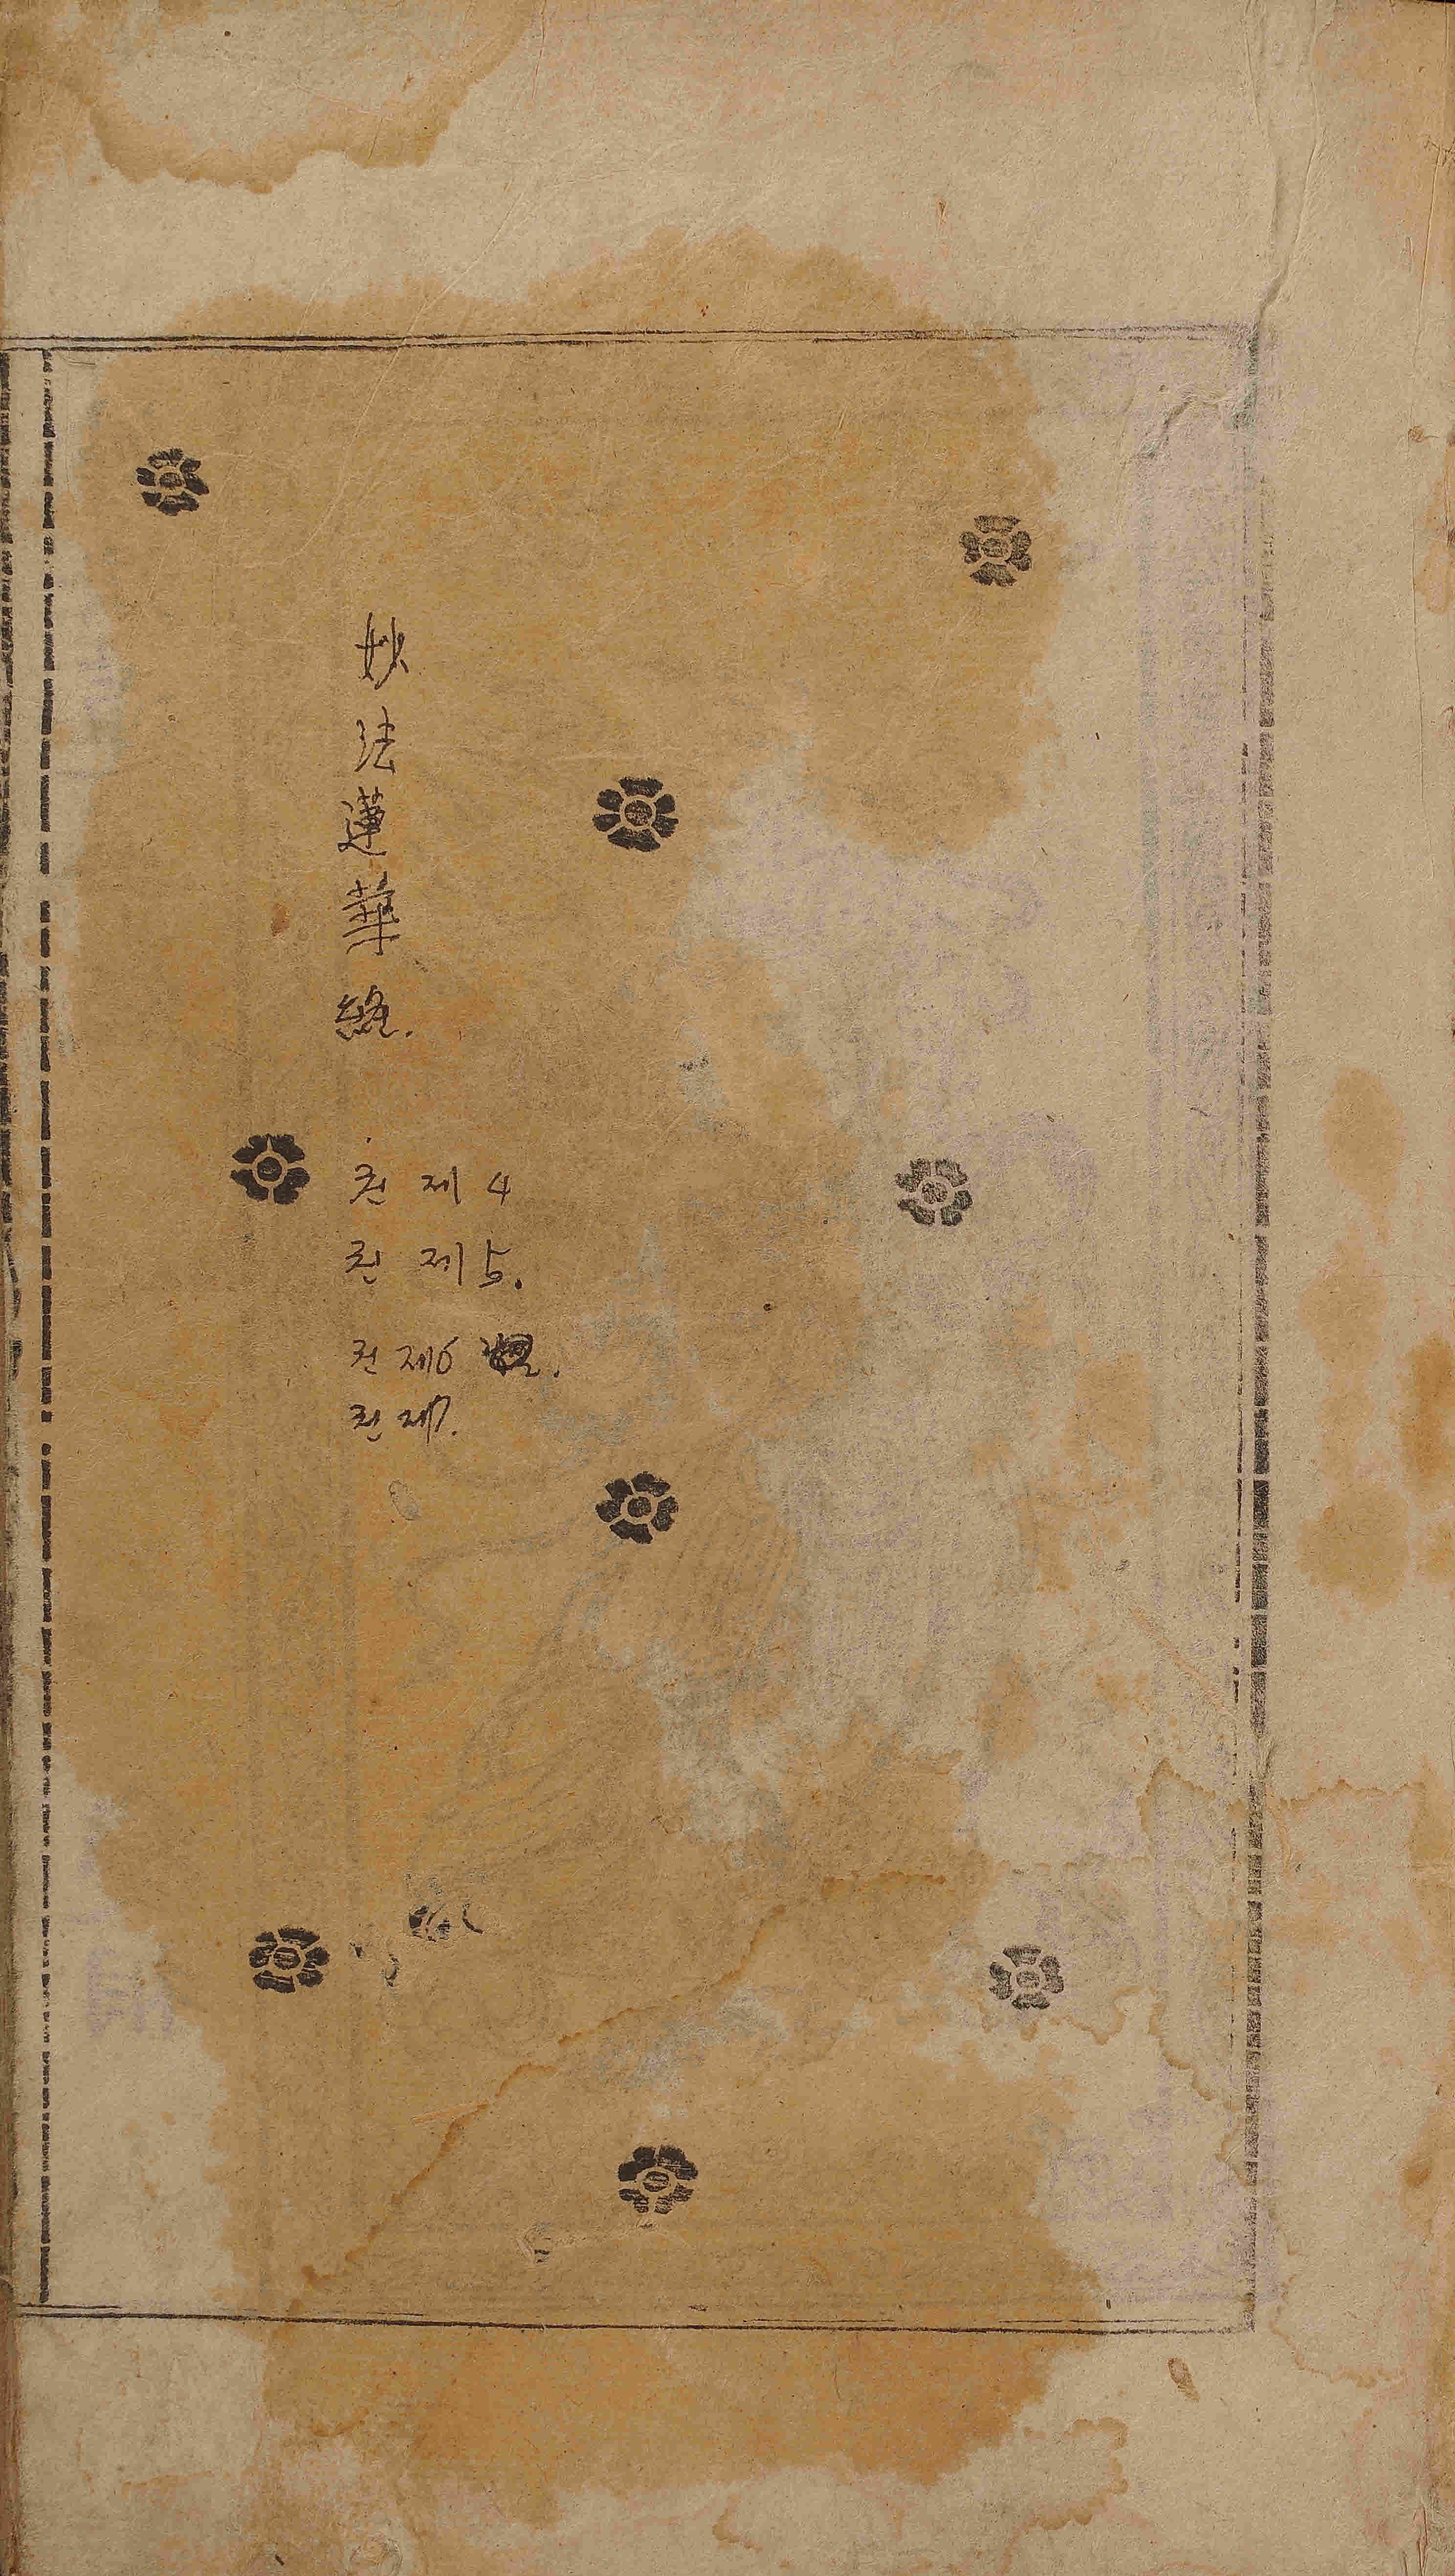 妙法蓮華経.
권 제 4
권 제 5.
권 제6
권 제7.